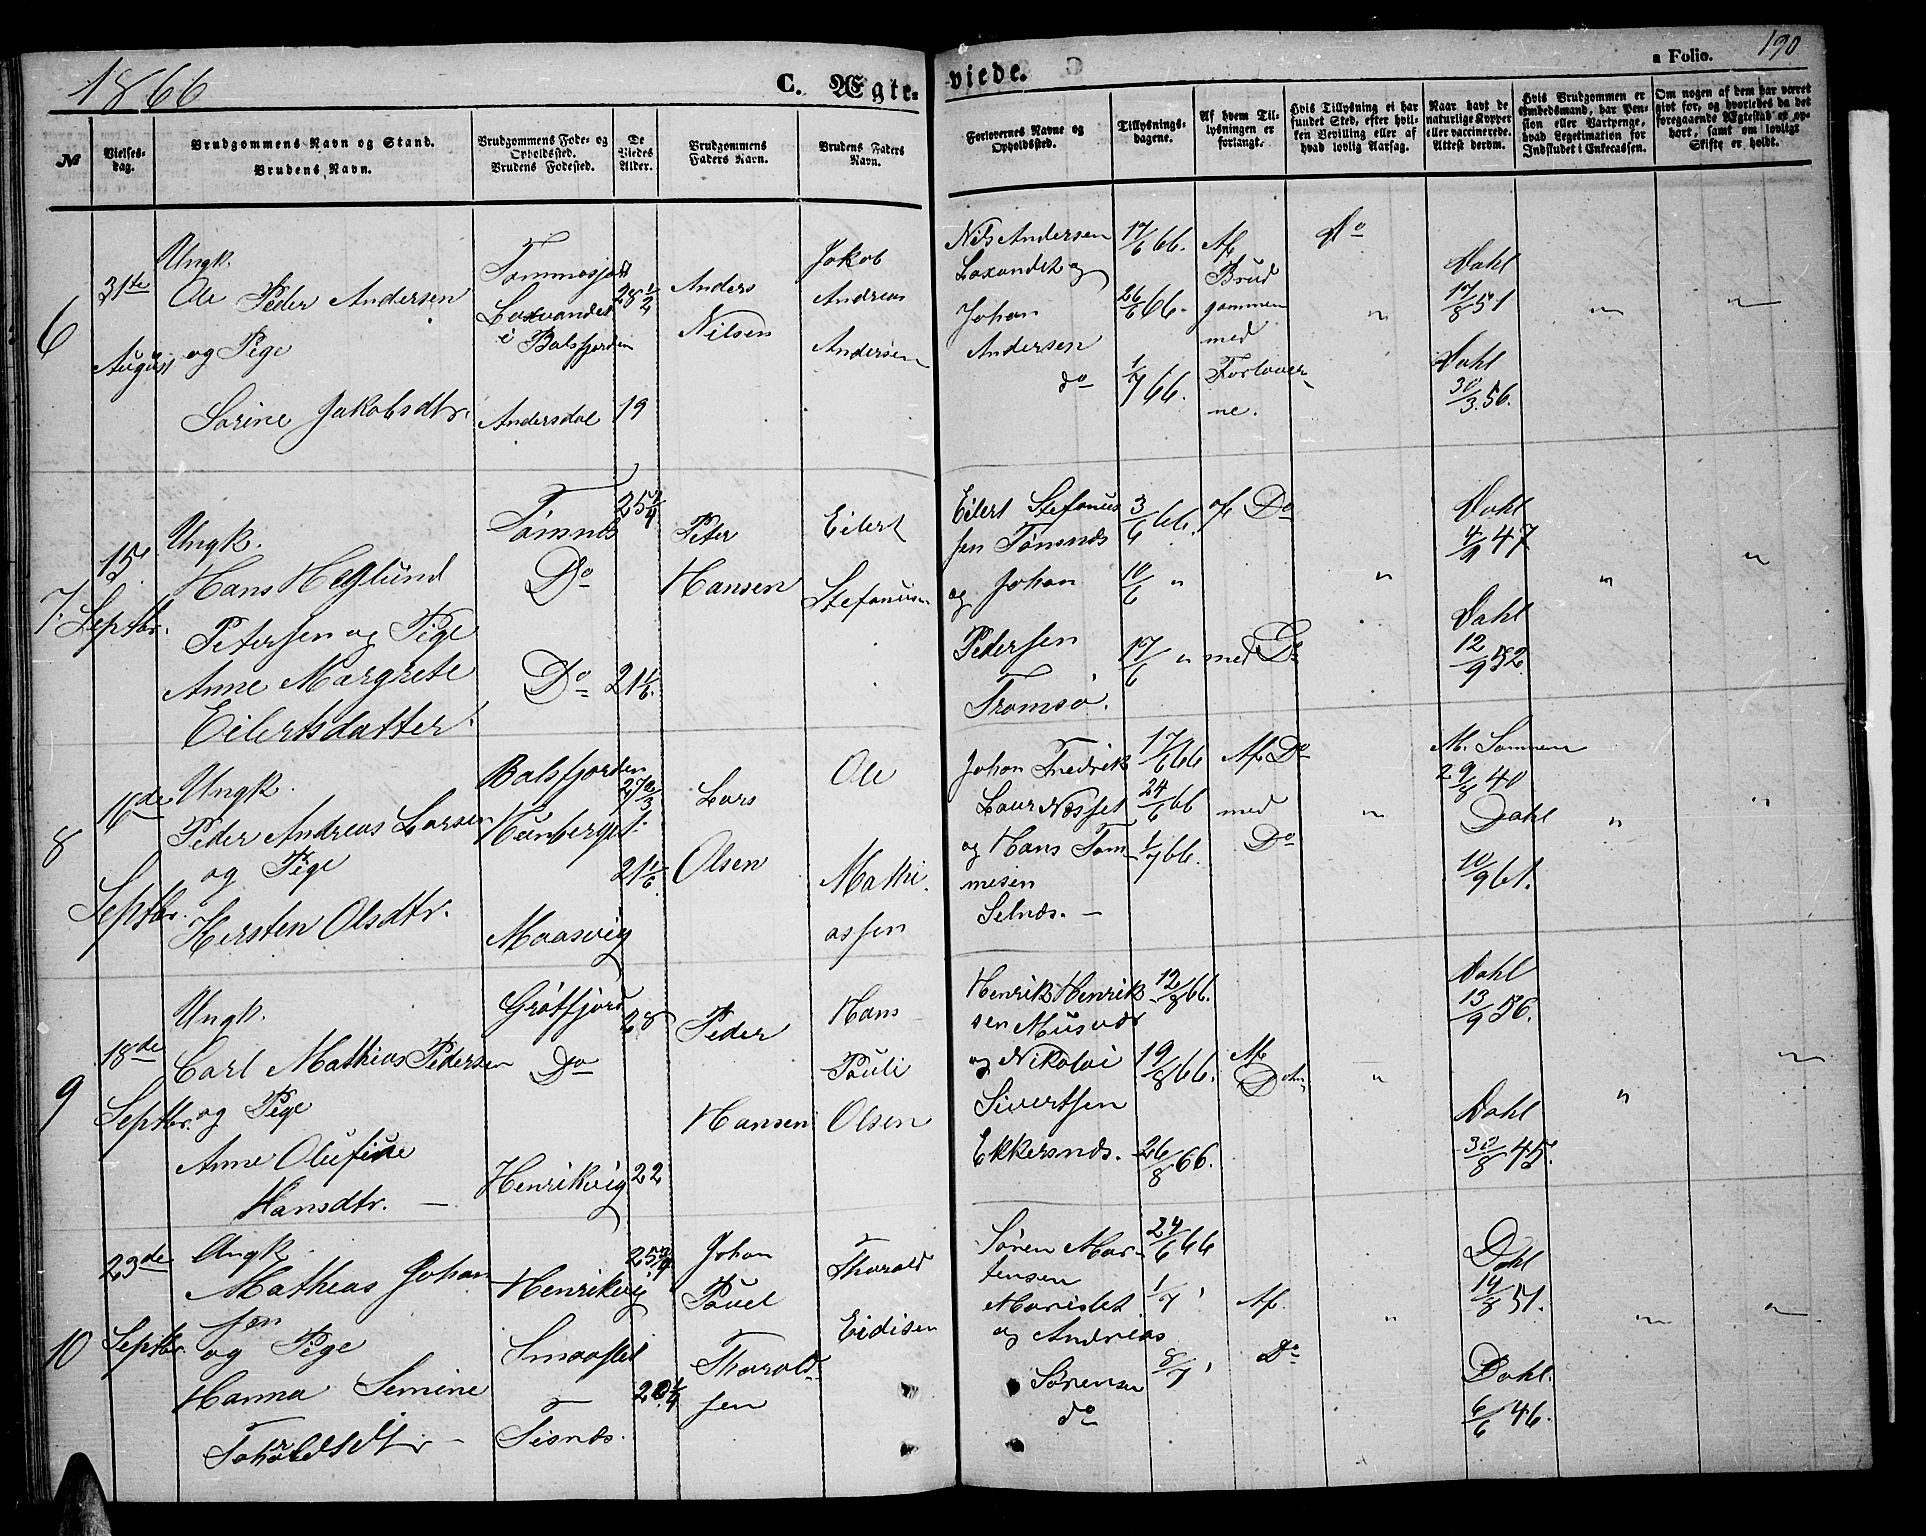 1866
C. Ægte-
viede.
a Folio.
190
№
Vielses-
dag.
Brudgommens Navn og Stand.
Brudens Navn.
Brudgommens Føde- og
Opholdssted.
Brudens Fødested.
De
Viedes
Alder.
Brudgommens
Faders Navn.
Brudens Faders
Navn.
Forlovernes Navne og
Opholdssted.
Tillysnings-
dagene.
Af hvem Til-
lysningen er
forlangt.
Hvis Tillysning ei har
fundet Sted, efter hvil-
ken Bevilling eller af
hvad lovlig Aarsag.
Naar havt de
naturlige Kopper
eller vaccinerede.
Attest derom.
Hvis Brudgommen er
Embedsmand, har Pen-
sion eller Vartpenge,
hvad Legetimation for
Indskudet i Enkecassen.
Om nogen af dem har været
gift for, og hvorledes da det
foregaaende Ægteskab er op-
hørt, samt om lovligt
Skifte er holdt.
6
31te
August
Ungk.
Ole Peder Andersen
og Pige
Sorine Jakobsdtr.
i Balsfjorden
Andersdal
28 1/2
19
Anders
Nilsen
Jakob
Andreas
Andersen
Nils Andersen
og
Johan
Andersen
do
17/6 66.
26/6 66.
1/7 66.
Af
Brud
gommen
med
Forlover
ne.
Do
"
Dahl
17/8 51
Dahl
30/3 56.
"
"
7.
15.
Septbr.
Ungk.
Hans Heglund
Petersen og Pige
Anne Margrete
Eilertsdatter
Tømnes
Do
Do
25 3/4
21 1/6.
Peter
Hansen
Eilert
Stefanusen
Eilert Stefanus
sen Tønsnæs
og Johan
Pedersen
Tromsø.
3/6 66.
10/6 "
17/6 "
af Do
med Do
"
Dahl
4/9 47
Dahl
12/9 52
"
"
8
16de
Septbr.
Ungk.
Peder Andreas Larsen
og Pige
Kersten Olsdtr.
Balsfjorden
Maasvig
27 2/3
21 1/6.
Lars
Olsen
Ole
Mathi
assen
Johan Fredrik
og Hans Tom-
mesen
Selnæs. —
17/6 66
24/6 66
1/7 66.
Af Do
med
Do
"
29/8 40
Dahl
10/9 61.
"
"
9
18de
Septbr.
Ungk.
Carl Mathias Pedersen
og Pige
Anne Olufine
Hansdtr. —
Grøtfjord
Do
Henrikvig
28
22
Peder
Hansen
Hans
Pauli
Olsen
Henrik Henrik-
sen Musvær
og Nikolai
Sivertsen
Ekkersnæs.
12/8 66.
19/8 66.
26/8 66.
Af
"
Dahl
13/9 56.
Dahl
30/8 45.
"
"
10
23de
Septbr.
Ungk.
Mathias Johan
sen
og Pige
Hanna Semine
Henrikvig
Tisnæs.
25 3/4
20 1/4
Johan
Pauel
Thorald-
sen
Thorald
Eidisen
Søren Mor-
tensen
og Andreas
Sørensen
do
24/6 66
1/7 '
8/7 '
Af.
Do
"
Dahl
14/8 51.
Dahl.
6/6 46.
"
"